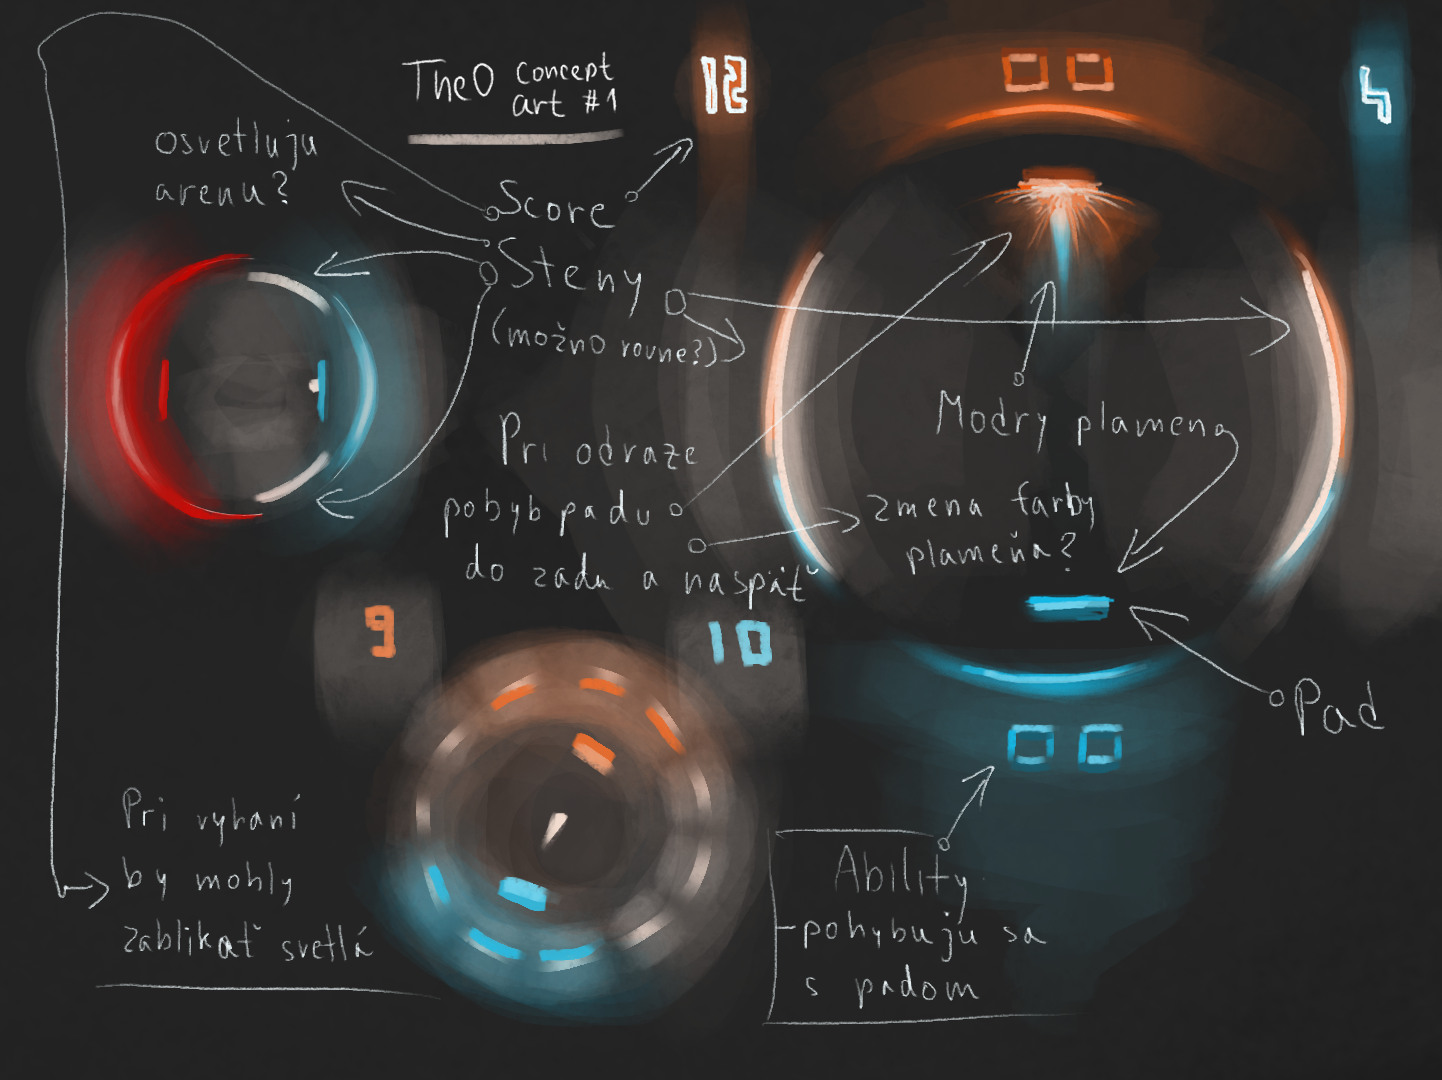 TheO concept
art #1
12
4
osvetluju
arenu?
Score
Steny
(možno rovne?)
Pri odraze
pobyb padu
do zadu a naspäť
Modry plamen
zmena farby
plameňa?
9
10
Pad
Pri vyhaní
by mohly
zablikať svetlá
Ability
-pohybuju sa
s padom